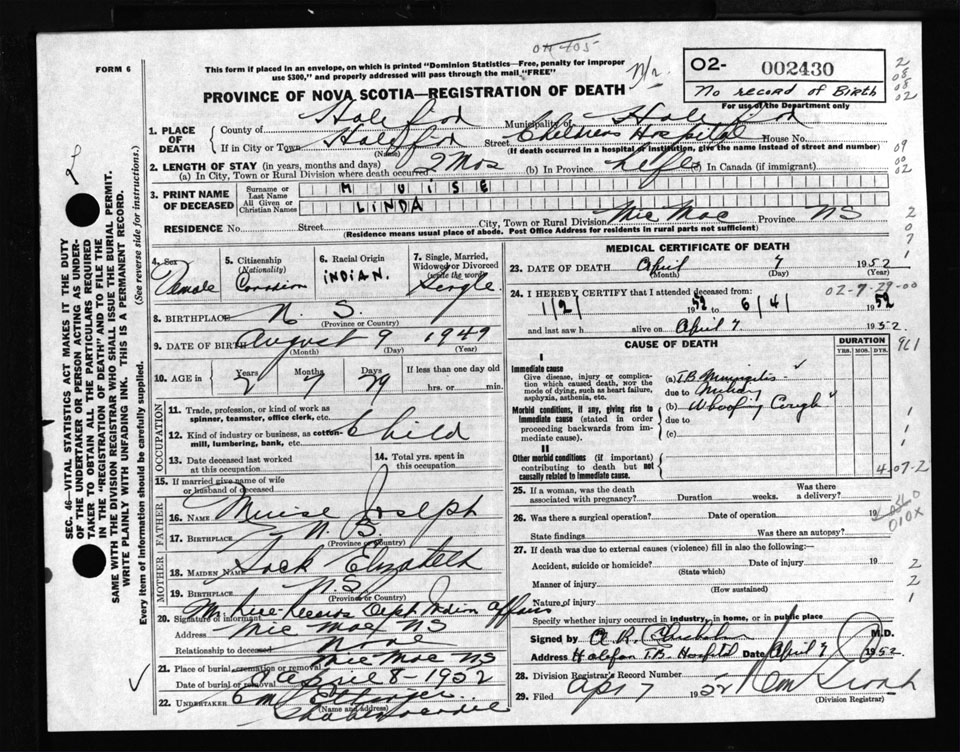 FORM 6
This form if placed in an envelope, on which is printed "Dominion Statistics—Free, penalty for improper
use $300," and properly addressed will pass through the mail "FREE"
O2- 002430
No record of Birth
For use of the Department only
PROVINCE OF NOVA SCOTIA—REGISTRATION OF DEATH
1. PLACE OF DEATH
County of Halifax Municipality of Halifax
If in City or Town Halifax (Name) Street Childrens Hospital House No.
(If death occurred in a hospital or institution, give the name instead of street and number)
2. LENGTH OF STAY (in years, months and days)
(a) In City, Town or Rural Division where death occurred 2 Mos (b) In Province Life (c) In Canada (if immigrant)
3. PRINT NAME OF DECEASED
Surname or Last Name MUISE
All Given or Christian Names LINDA
RESIDENCE No. Street City, Town or Rural Division Mic Mac Province NS
(Residence means usual place of abode. Post Office Address for residents in rural parts not sufficient)
4. Sex Female
5. Citizenship (Nationality) Canadian
6. Racial Origin INDIAN.
7. Single, Married, Widowed or Divorced (write the word) Single
8. BIRTHPLACE N. S. (Province or Country)
9. DATE OF BIRTH August 9 1949
(Month) (Day) (Year)
10. AGE in Years Months Days If less than one day old
2 7 29 hrs. or min.
OCCUPATION
11. Trade, profession, or kind of work as spinner, teamster, office clerk, etc.
12. Kind of industry or business, as cotton-mill, lumbering, bank, etc. Child
13. Date deceased last worked at this occupation
14. Total yrs. spent in this occupation
15. If married give name of wife or husband of deceased
FATHER
16. NAME Muise Joseph
17. Birthplace N.B. (Province or Country)
MOTHER
18. MAIDEN NAME Sack Elizabeth
19. Birthplace NS (Province or Country)
20. Signature of informant Mr Rice Dept Indian Affairs
Address Mic Mac NS
Relationship to deceased None
21. Place of burial, cremation or removal Mic Mac NS
Date of burial or removal April 8-1952
22. UNDERTAKER
(Name and address)
MEDICAL CERTIFICATE OF DEATH
23. DATE OF DEATH April 7 1952
(Month) (Day) (Year)
24. I HEREBY CERTIFY that I attended deceased from
1/2/ 1952 to 6/4/ 1952
and last saw h alive on April 7 1952
02-7-29-00
CAUSE OF DEATH
DURATION
YRS. MOS. DYS.
I
Immediate cause
Give disease, injury or complication which caused death, NOT the mode of dying, such as heart failure, asphyxia, asthenia, etc.
(a) T.B. Meningitis
due to
Morbid conditions, if any, giving rise to immediate cause (stated in order proceeding backwards from immediate cause).
(b) Whooping Cough
due to
(c)
II
Other morbid conditions (if important) contributing to death but not causally related to immediate cause.
4-07-2
25. If a woman, was the death associated with pregnancy? Duration weeks. Was there a delivery?
26. Was there a surgical operation? Date of operation 19
State findings Was there an autopsy?
010X
27. If death was due to external causes (violence) fill in also the following:—
Accident, suicide or homicide? Date of injury 19
(State which)
Manner of injury
(How sustained)
Nature of injury
Specify whether injury occurred in industry, in home, or in public place
Signed by M.D.
Address Halifax T.B. Hospital Date April 7 1952
28. Division Registrar's Record Number
29. Filed Apr 7 1952
(Division Registrar)
SEC. 46—VITAL STATISTICS ACT MAKES IT THE DUTY
OF THE UNDERTAKER OR PERSON ACTING AS UNDER-
TAKER TO OBTAIN ALL THE PARTICULARS REQUIRED
IN THE "REGISTRATION OF DEATH" AND TO FILE THE
SAME WITH THE DIVISION REGISTRAR WHO SHALL ISSUE THE BURIAL PERMIT.
WRITE PLAINLY WITH UNFADING INK. THIS IS A PERMANENT RECORD.
Every item of information should be carefully supplied. (See reverse side for instructions.)